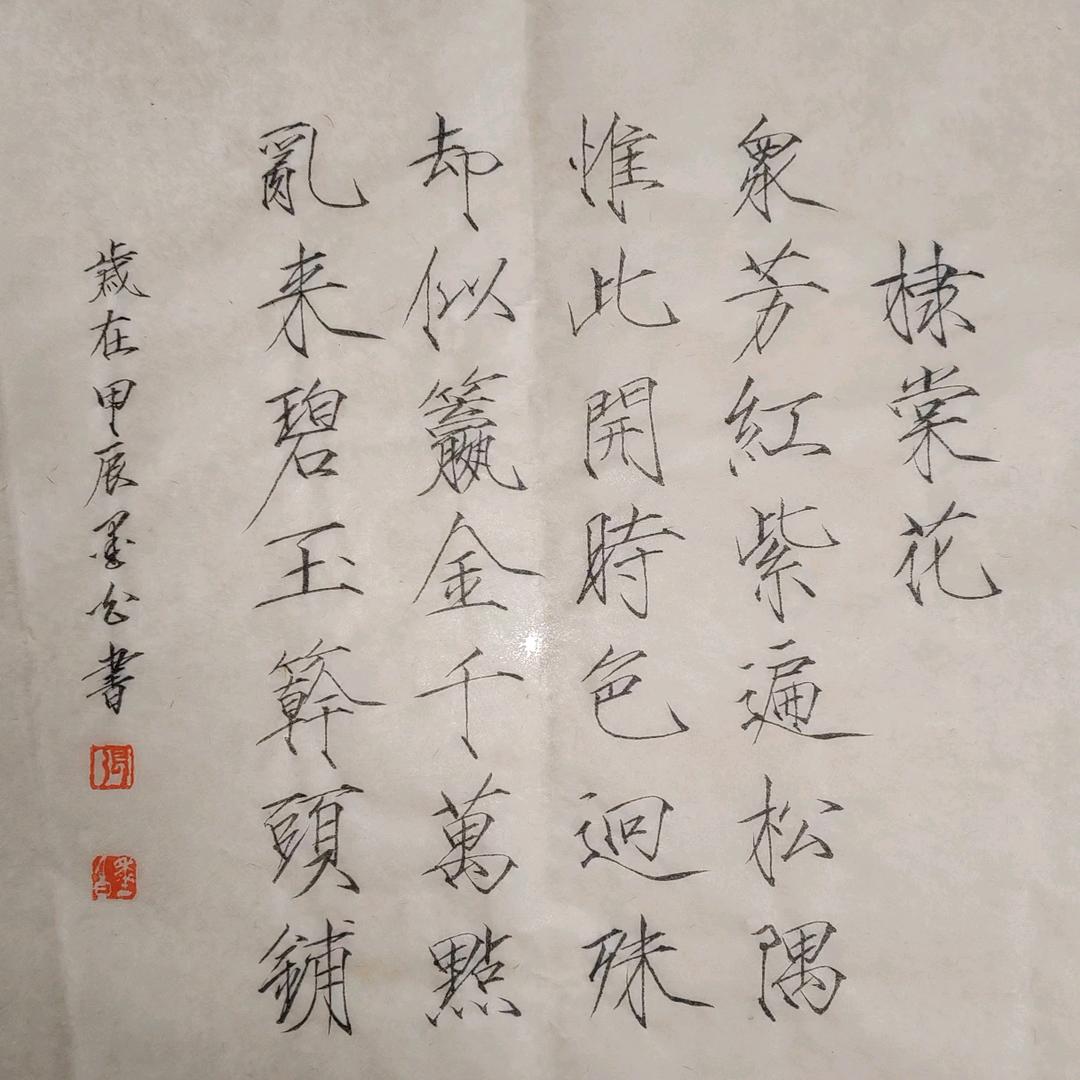 棣棠花
衆芳紅紫遍松隅
惟此開時色迥殊
却似籯金千萬點
亂来碧玉簳頭鋪
歲在甲辰墨公書
張
墨公